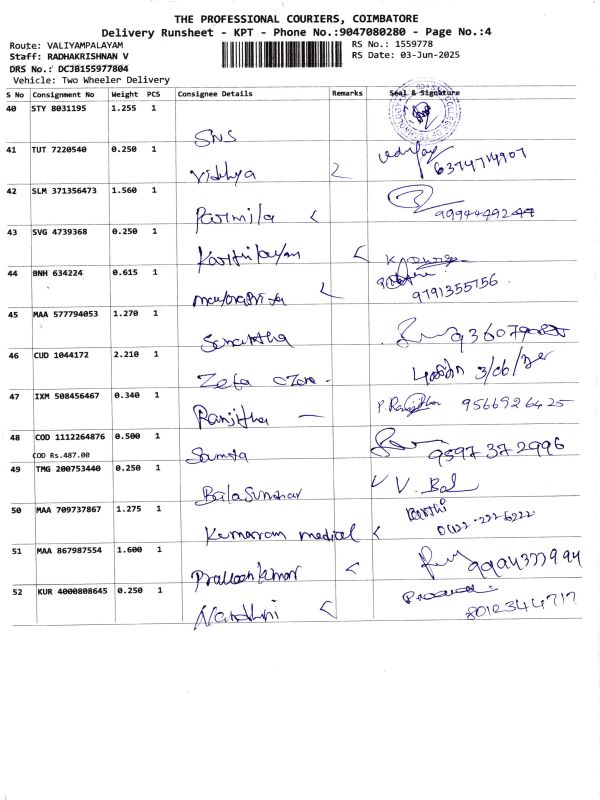 THE PROFESSIONAL COURIERS, COIMBATORE
Delivery Runsheet - KPT - Phone No.:9047080280 - Page No.:4
Route: VALIYAMPALAYAM RS No.: 1559778
Staff: RADHAKRISHNAN V RS Date: 03-Jun-2025
DRS No.: DCJB155977804
Vehicle: Two Wheeler Delivery
S No Consignment No Weight PCS Consignee Details Remarks Seal & Signature
40 STY 8031195 1.255 1
SNS
41 TUT 7220540 0.250 1
Vidhya 6374714907
42 SLM 371356473 1.560 1
Parmila
43 SVG 4739368 0.250 1
44 BNH 634224 0.615 1
9791355756
45 MAA 577794053 1.270 1
46 CUD 1044172 2.210 1
Zeta 3/06/
47 IXM 508456467 0.340 1
Ranjitha P. Ranjitha 9566926425
48 COD 1112264876 0.500 1
COD Rs.487.00 9597372996
49 TMG 200753440 0.250 1
V. Bal
50 MAA 709737867 1.275 1
medical 0422-2226222
51 MAA 867987554 1.600 1
52 KUR 4000808645 0.250 1
Nandhni 8012344717